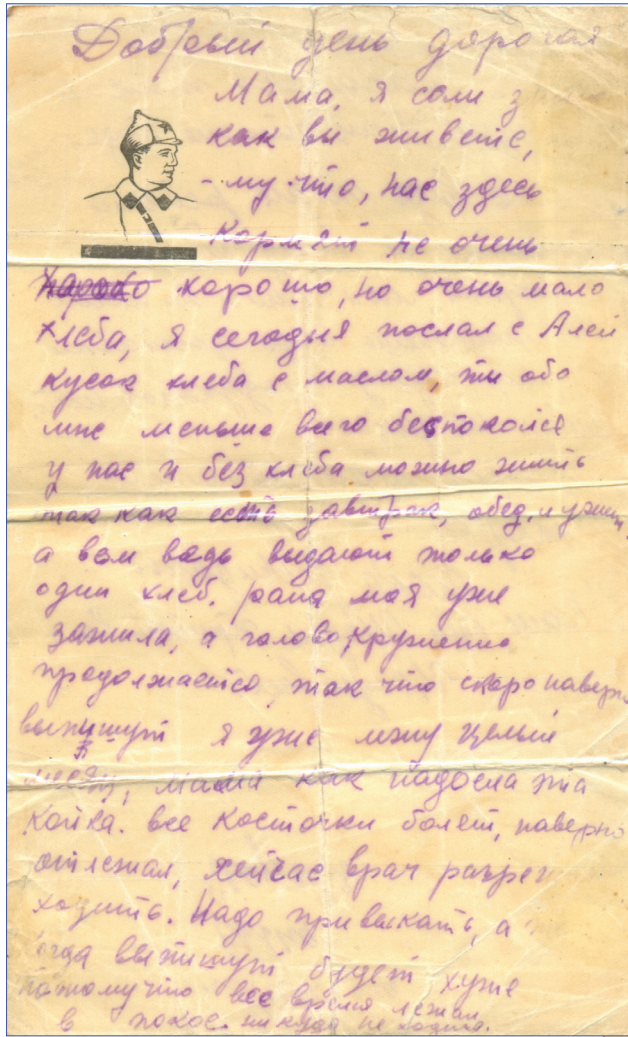 Добрый день дорогая
Мама, я сам
как вы живете,
-му-что, нас здесь
кормят не очень
хорошо, но очень мало
хлеба, я сегодня послал с Алей
кусок хлеба с маслом, ты обо
мне меньше всего беспокойся
у нас и без хлеба можно жить
так как есть завтрак, обед, и ужин,
а вам ведь выдают только
один хлеб. рана моя уже
зажила, а голово кружение
продолжается так что скоро наверно
выпишут я уже лежу целый
месяц, мама как надоела эта
койка. все косточки болет, наверно
отлежал, сейчас врач
ходить. Надо привыкать, а
выпишут будет хуже
потомучто все время лежал
в покое никуда не ходил.